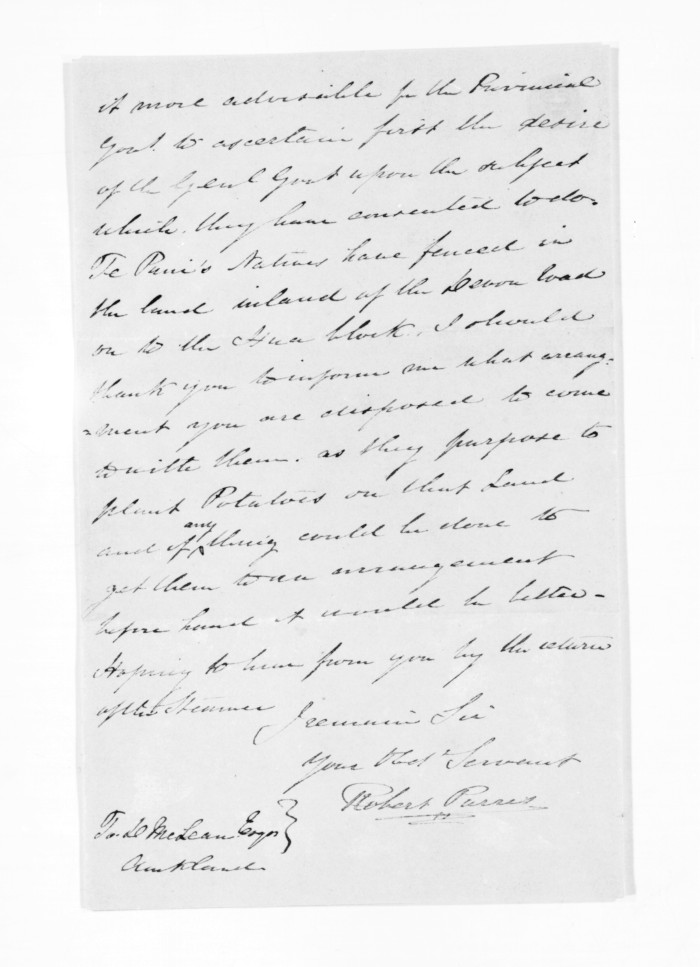 it more adviseable for the Provincial
Govt. to ascertain first the desire
of the Genl Govt upon the subject
which they have consented to do.
Te Puni's Natives have fenced in
the land inland of the Devon Road
on to the Hua block, I should
thank you to inform me what arrang=
=ment you are disposed to come
to with them. as they purpose to
plant Potatoes on that Land
and if any thing could be done to
get them to an arrangement
before hand it would be better -
Hoping to hear from you by the return
of the Steamer
I remain Sir
Your Obdt Servant
Robert Parris
To. D McLean Esqr
Auckland